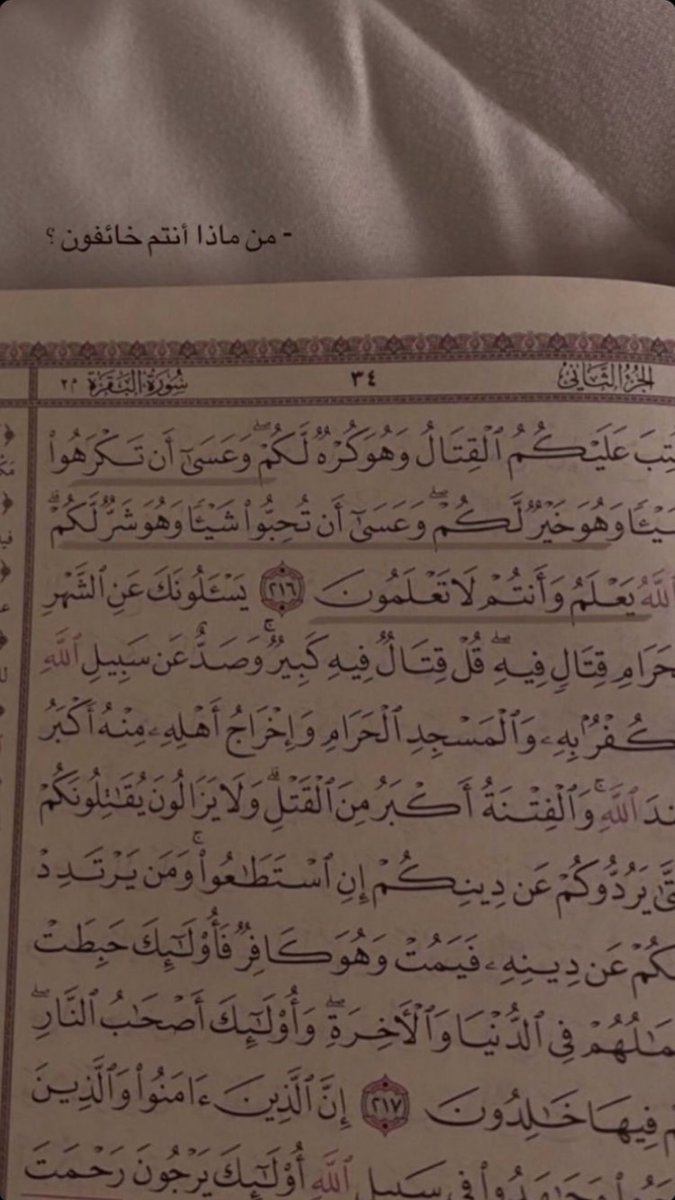 - من ماذا أنتم خائفون ؟
الجزء الثاني ٣٤ سورة البقرة م ٢
كُتِبَ عَلَيْكُمُ ٱلْقِتَالُ وَهُوَ كُرْهٌ لَّكُمْ ۖ وَعَسَىٰٓ أَن تَكْرَهُوا۟
شَيْـًٔا وَهُوَ خَيْرٌ لَّكُمْ ۖ وَعَسَىٰٓ أَن تُحِبُّوا۟ شَيْـًٔا وَهُوَ شَرٌّ لَّكُمْ ۗ
ٱللَّهُ يَعْلَمُ وَأَنتُمْ لَا تَعْلَمُونَ ٢١٦ يَسْـَٔلُونَكَ عَنِ ٱلشَّهْرِ
حَرَامِ قِتَالٍ فِيهِ ۖ قُلْ قِتَالٌ فِيهِ كَبِيرٌ ۚ وَصَدٌّ عَن سَبِيلِ ٱللَّهِ
كُفْرٌۢ بِهِۦ وَٱلْمَسْجِدِ ٱلْحَرَامِ وَإِخْرَاجُ أَهْلِهِۦ مِنْهُ أَكْبَرُ
ندَ ٱللَّهِ ۚ وَٱلْفِتْنَةُ أَكْبَرُ مِنَ ٱلْقَتْلِ ۗ وَلَا يَزَالُونَ يُقَـٰتِلُونَكُمْ
تَّىٰ يَرُدُّوكُمْ عَن دِينِكُمْ إِنِ ٱسْتَطَـٰعُوا۟ ۚ وَمَن يَرْتَدِدْ
كُمْ عَن دِينِهِۦ فَيَمُتْ وَهُوَ كَافِرٌ فَأُو۟لَـٰٓئِكَ حَبِطَتْ
مَـٰلُهُمْ فِى ٱلدُّنْيَا وَٱلْـَٔاخِرَةِ ۖ وَأُو۟لَـٰٓئِكَ أَصْحَـٰبُ ٱلنَّارِ ۖ
فِيهَا خَـٰلِدُونَ ٢١٧ إِنَّ ٱلَّذِينَ ءَامَنُوا۟ وَٱلَّذِينَ
فِى سَبِيلِ ٱللَّهِ أُو۟لَـٰٓئِكَ يَرْجُونَ رَحْمَتَ